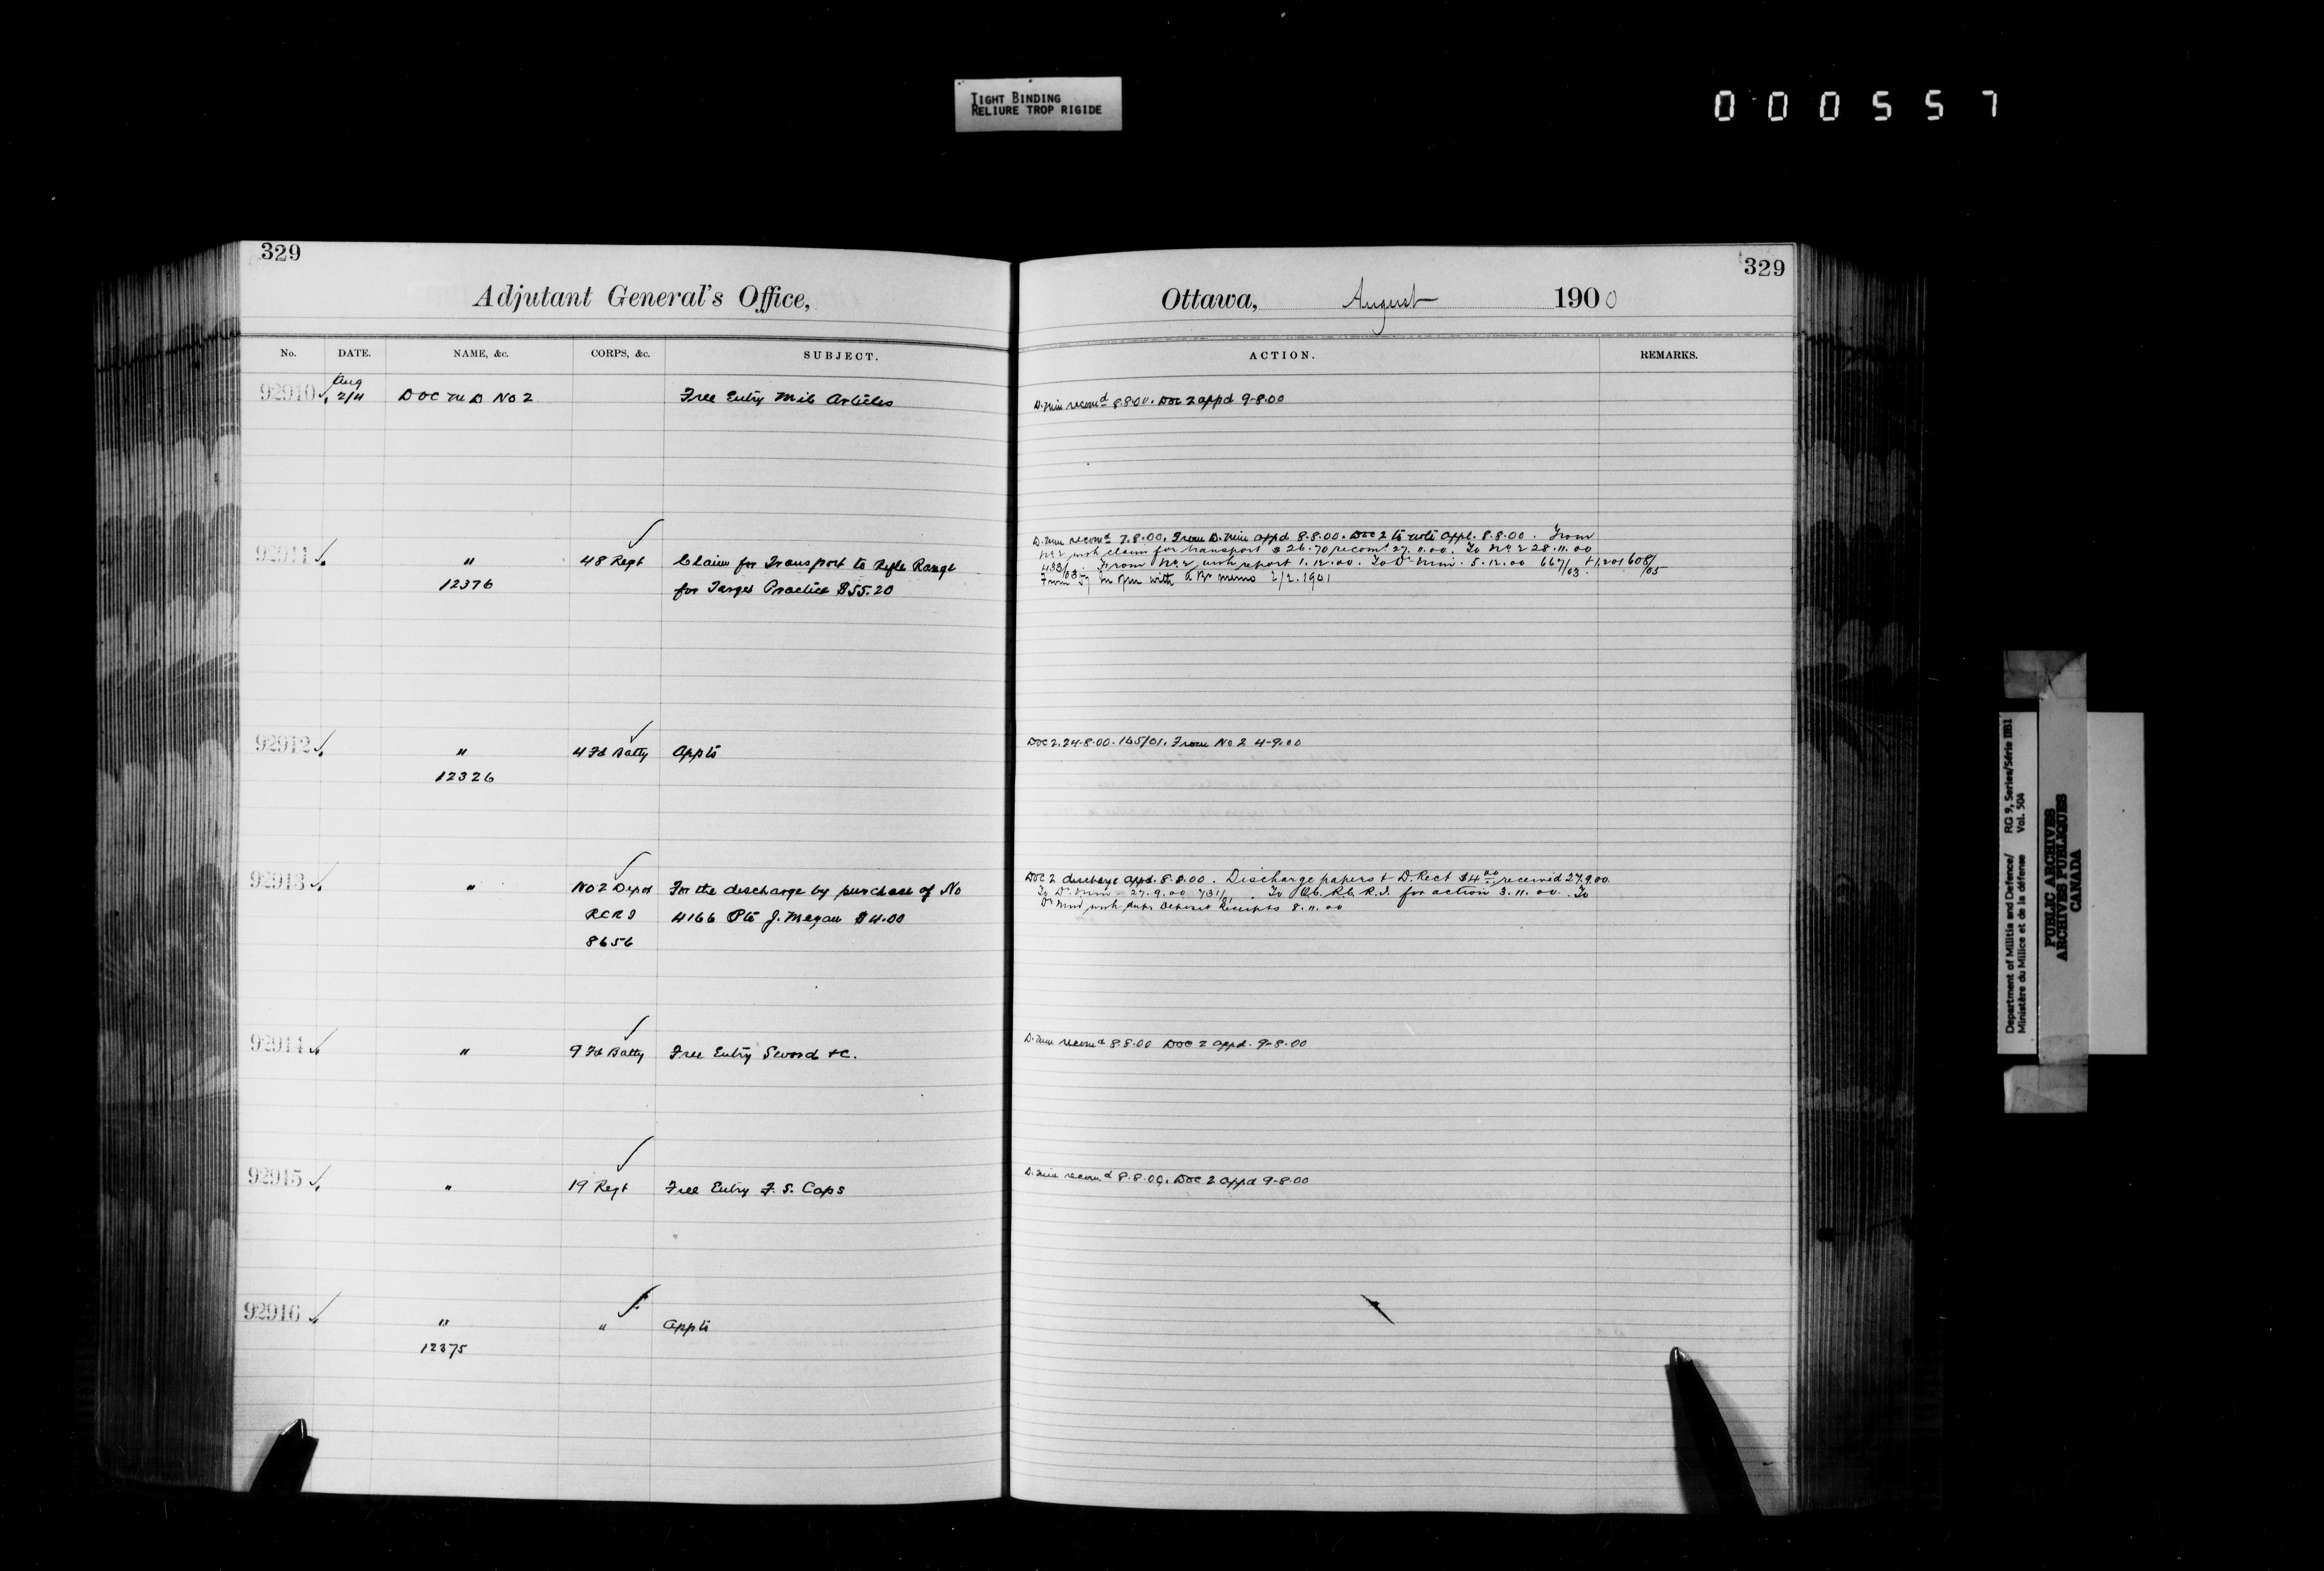 TIGHT BINDING
RELIURE TROP RIGIDE
000557
329
Adjutant General's Office,
No. DATE. NAME, &c. CORPS, &c. SUBJECT.
92910 Aug 2/4 DOC M D No 2 Free Entry Mil Articles
92911 " 48 Regt Claim for Transport to Rifle Range
12376 for Target Practice $55.20
92912 " 4 Fd Batty Appts
12326
92913 " No 2 Depot For the discharge by purchase of No
RCRI 4166 Pte J. Megan $4.00
8656
92914 " 9 Fd Batty Free Entry Sword &c.
92915 " 19 Regt Free Entry F. S. Caps
92916 " " Appts
12375
329
Ottawa, August 1900
ACTION. REMARKS.
D. Min recomd 8.8.00. DOC 2 appd 9-8.00
D. Min recomd 7.8.00. From D. Min appd 8.8.00. DOC 2 to note appl. 8.8.00. From
No 2 with claim for transport $26.70 recomd To No 2 28.11.00
433/03. From No 2 with report 1.12.00. To D. Min. 5.12.00 667/03 608/05
From with memo 2/2.1901
DOC 2. 24-8-00. 165/01. From No 2 4-9.00
DOC 2 discharge appd. 8.8.00. Discharge papers & D. Rect $4.00 received 27.9.00.
To D. Min 27.9.00 To R.I. for action 3.11.00. To
D. Min with Deposit Receipts 8.11.00
D. Min recomd 8.8.00 DOC 2 appd. 9-8.00
D. Min recomd 8.8.00. DOC 2 appd 9-8.00
Department of Militia and Defence/ RG 9, Series/Série IIB1
Ministère du Milice et de la défense Vol. 504
PUBLIC ARCHIVES
ARCHIVES PUBLIQUES
CANADA